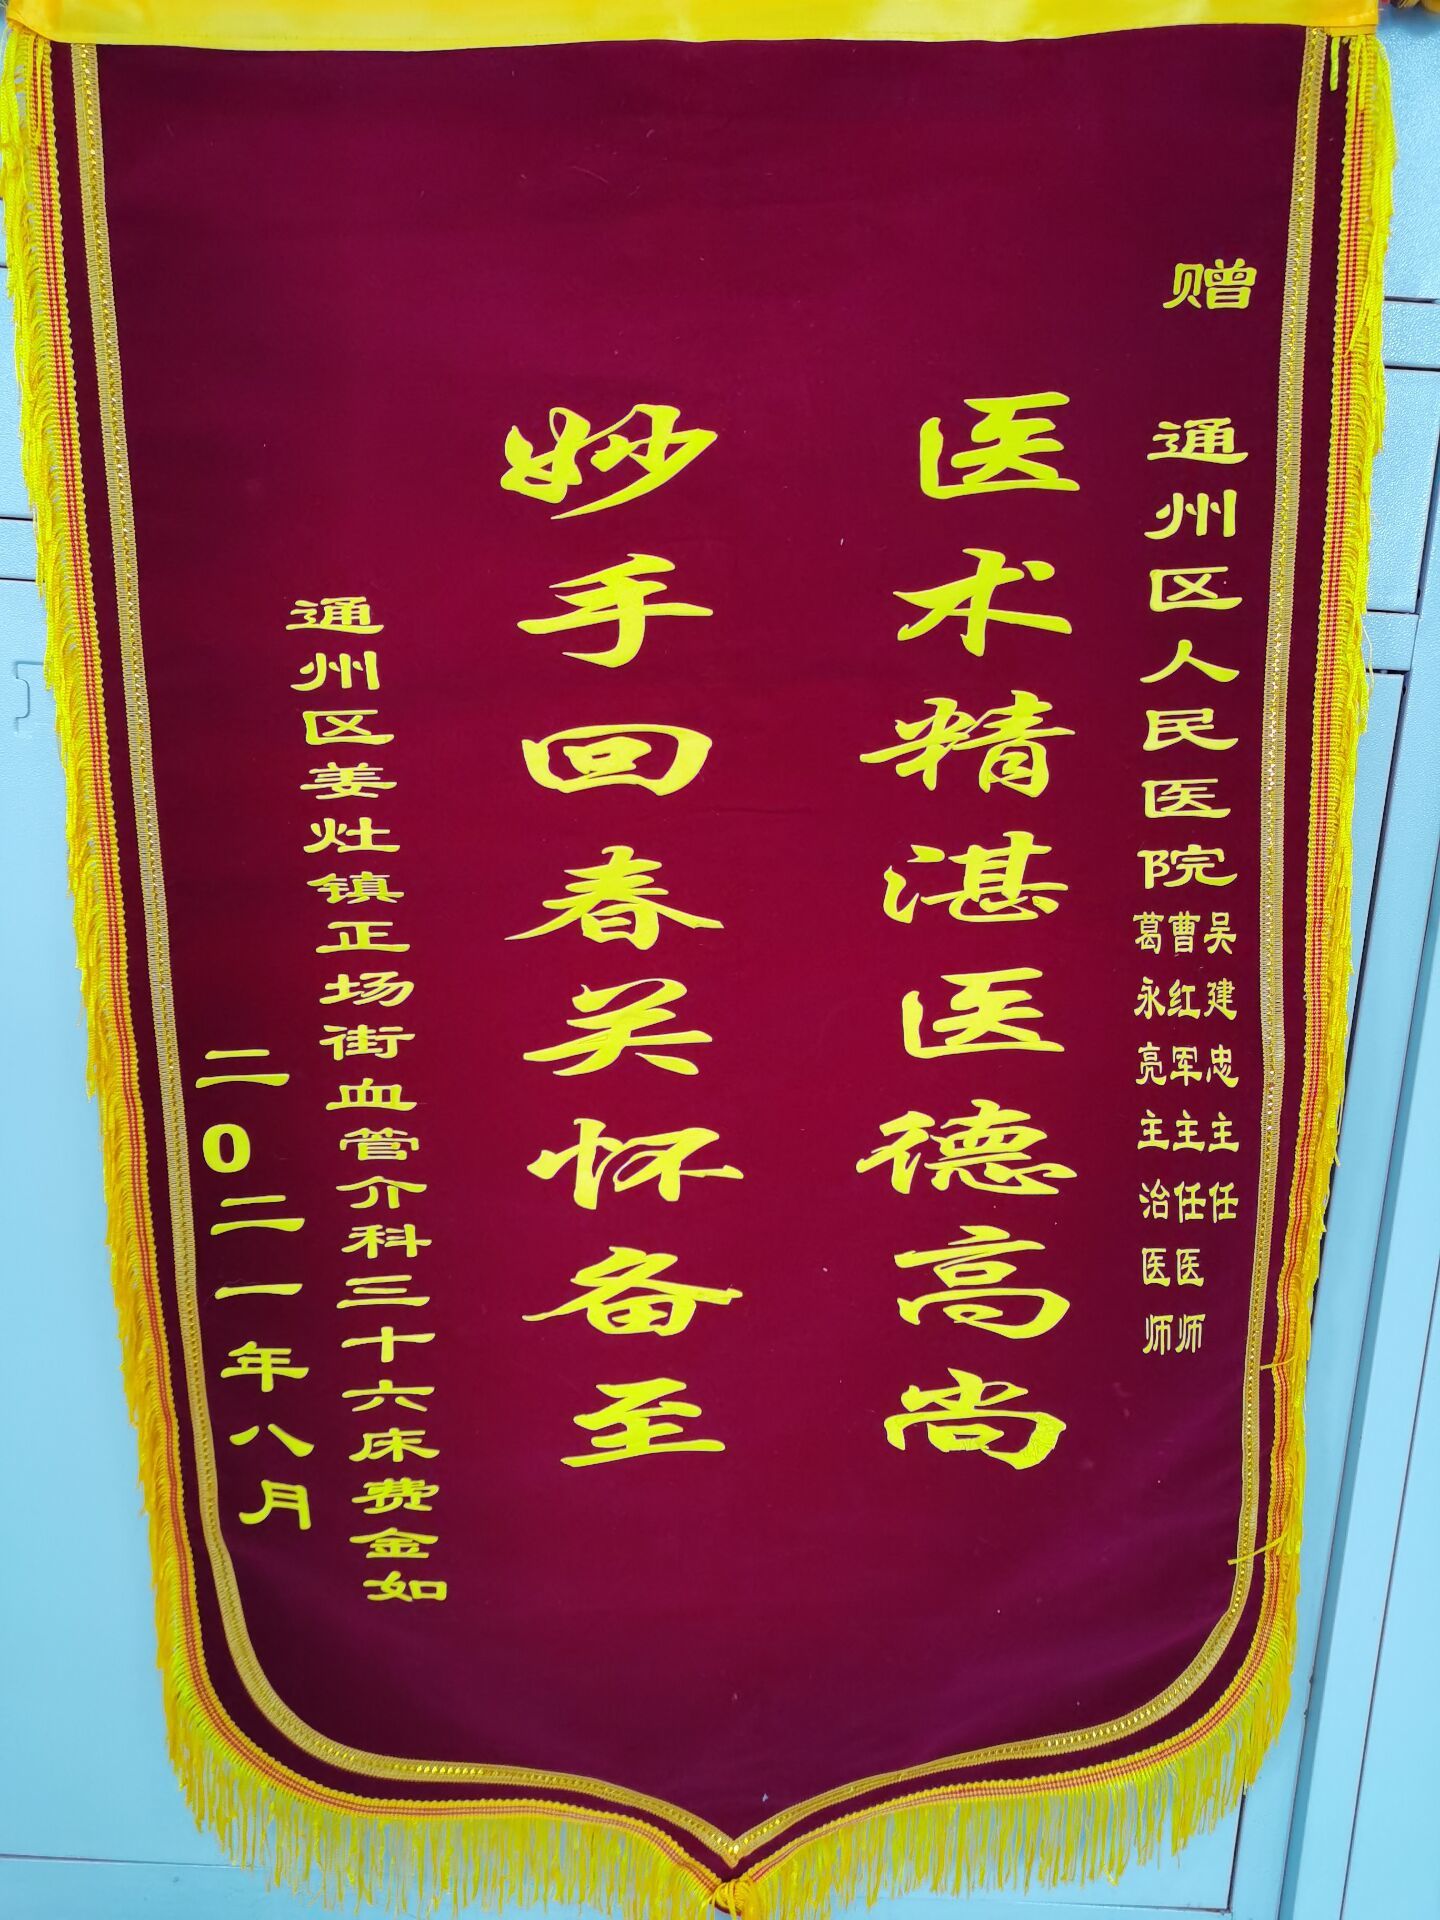 赠
通州区人民医院
吴建忠主任
曹红军主任医师
葛永亮主治医师
医术精湛医德高尚
妙手回春关怀备至
通州区姜灶镇正场街血管介科三十六床费金如
二0二一年八月